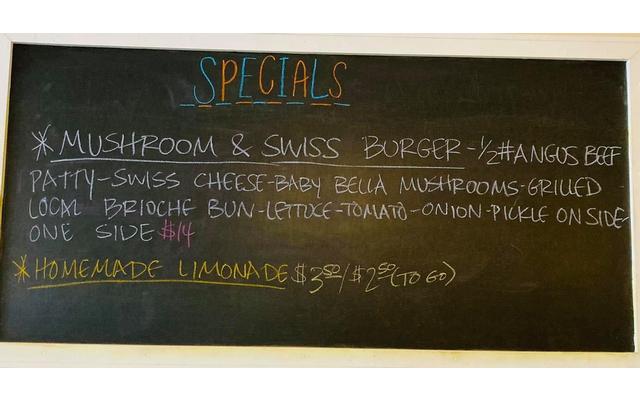 SPECIALS
* MUSHROOM & SWISS BURGER - 1/2 # ANGUS BEEF
PATTY - SWISS CHEESE - BABY BELLA MUSHROOMS - GRILLED
LOCAL BRIOCHE BUN - LETTUCE - TOMATO - ONION - PICKLE ON SIDE -
ONE SIDE $14
* HOMEMADE LIMONADE $3.50 / $2.50 (TO GO)